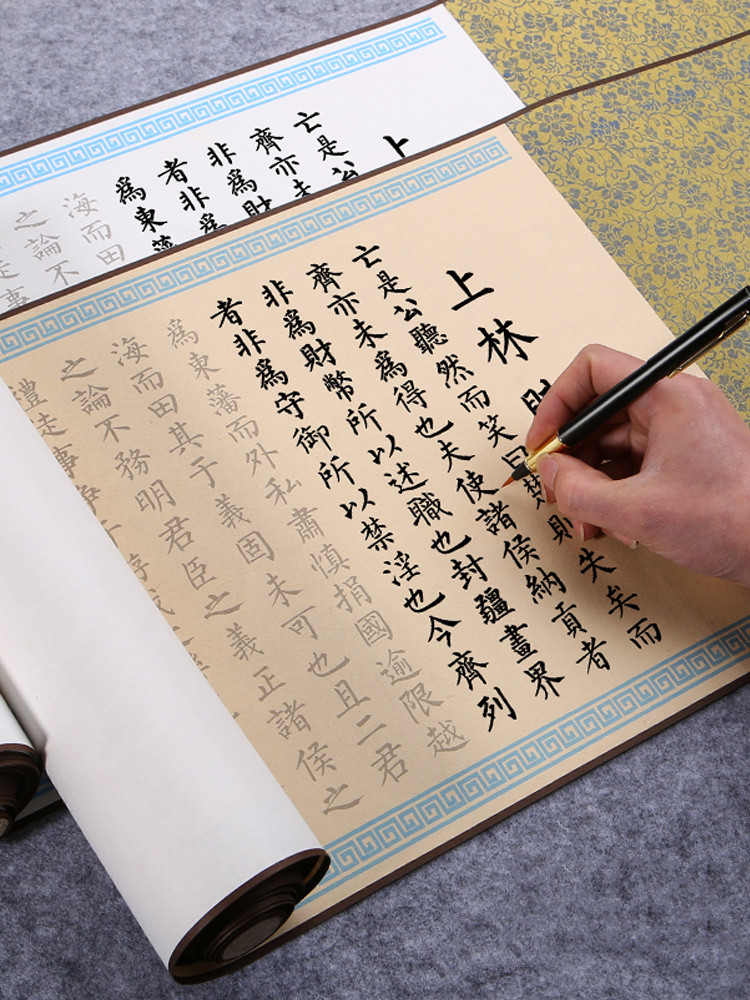 上林
亡是公聽然而笑曰楚則失矣而
齊亦未爲得也夫使諸侯納貢者
非爲財幣所以述職也封疆畫界
者非爲守御所以禁淫也今齊列
爲東藩而外私肅慎捐國逾限越
海而田其于義固未可也且二君
之論不務明君臣之義正諸侯之
事
亡是公
齊亦未
非爲財
者非爲
爲東藩
海而田
之論不
事